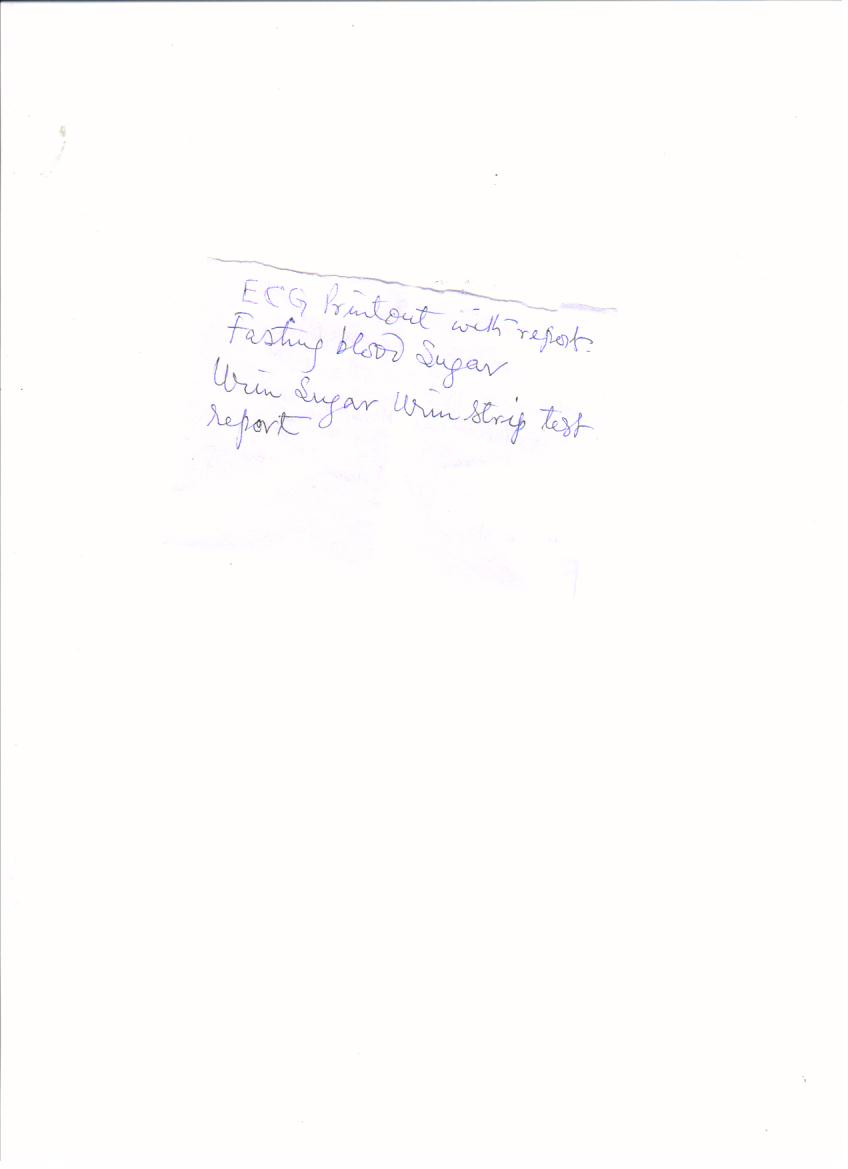 ECG Printout with report.
Fasting blood Sugar
Urin Sugar Urin Strip test
report